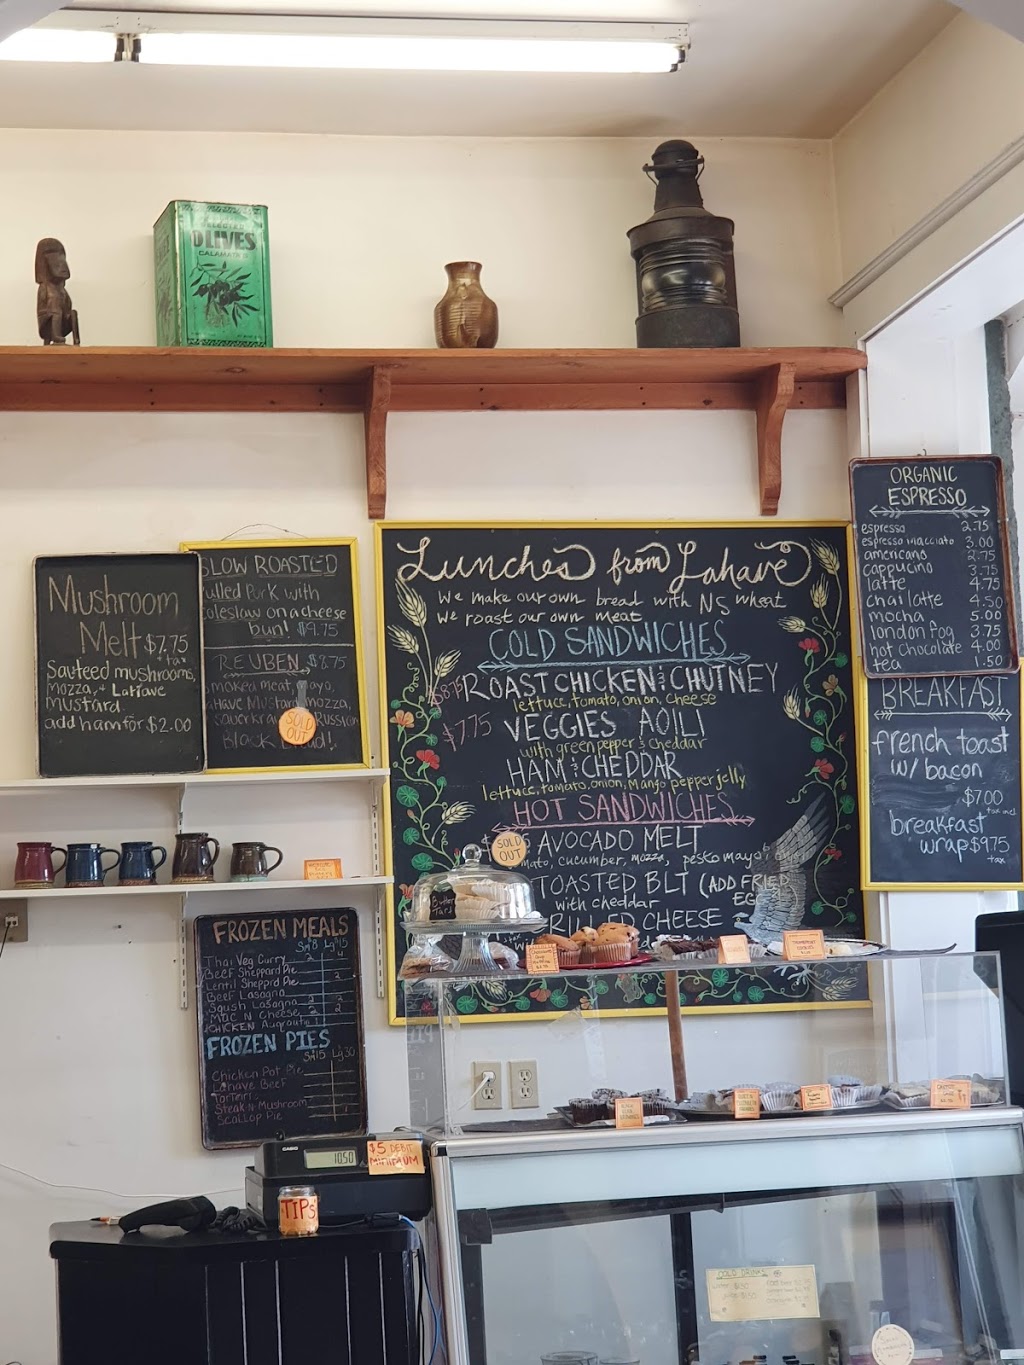 SELECTED
OLIVES
CALAMATA
Mushroom
Melt $7.75
+ tax
Sauteed mushrooms,
mozza, + LaHave
mustard
add ham for $2.00
SLOW ROASTED
Pulled Pork with
coleslaw on a cheese
bun! $9.75
REUBEN $8.75
smoked meat, mayo,
LaHave Mustard, mozza,
sauerkraut RUSSIAN
Black Bread!
SOLD
OUT
Lunches from Lahave
We make our own bread with NS wheat
We roast our own meat
COLD SANDWICHES
$8.75 ROAST CHICKEN & CHUTNEY
lettuce, tomato, onion, cheese
$7.75 VEGGIES AOILI
with green pepper & cheddar
HAM & CHEDDAR
lettuce, tomato, onion, Mango pepper jelly
HOT SANDWICHES
AVOCADO MELT
cucumber, mozza, pesto mayo
SOLD
OUT
TOASTED BLT (ADD FRIED
EGG
with cheddar
GRILLED CHEESE
ORGANIC
ESPRESSO
espresso 2.75
espresso macciato 3.00
americano 2.75
cappucino 3.75
latte 4.75
chai latte 4.50
mocha 5.00
london fog 3.75
hot chocolate 4.00
tea 1.50
BREAKFAST
french toast
w/ bacon
$7.00
tax incl
breakfast
wrap $9.75
tax
Butter
Tart
FROZEN MEALS
Sm8 Lg15
Thai Veg Curry 2 4
Beef Shepperd Pie
Lentil Shepprd Pie
Beef Lasagna
Squash Lasagna
Mac N Cheese
CHICKEN
FROZEN PIES
Sm15 Lg30
Chicken Pot Pie
Lahave Beef
Tortiari
Steak n Mushroom
Scallop Pie
CASIO
10.50
$5 DEBIT
MINIMUM
TIPS
COLD DRINKS